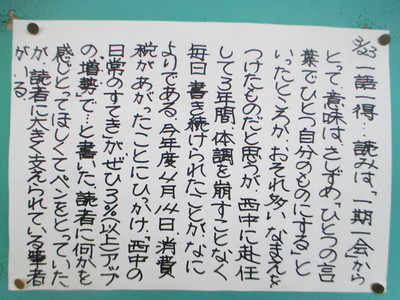 3/23 一語一得…読みは、「一期一会」から
とって、意味は、さずめ「ひとつの言
葉でひとつ自分のものにする」と
いったところが、おそれ多いなまえを
つけたものだと思うが、西中に赴任
して3年間、体調を崩すことなく
毎日書き続けられたことが、なに
よりである。今年度4月14日、消費
税があがったことにひっかけ、「西中の
日常のすてきがぜひ3%以上アップ
の増勢」で…と書いた。読者に何かを
感じとってほしくてペンをとっていた
が、読者に大きく支えられている筆者
がいる。